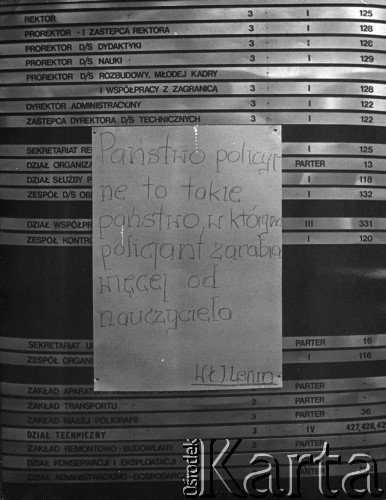 REKTOR 3 - I 125
PROREKTOR - I ZASTĘPCA REKTORA 3 - I 128
PROREKTOR D/S DYDAKTYKI 3 - I 126
PROREKTOR D/S NAUKI 3 - I 129
PROREKTOR D/S ROZBUDOWY, MŁODEJ KADRY
I WSPÓŁPRACY Z ZAGRANICĄ 3 - I 128
DYREKTOR ADMINISTRACYJNY 3 - I 122
ZASTĘPCA DYREKTORA D/S TECHNICZNYCH 3 - I 122
SEKRETARIAT I 125
DZIAŁ ORGANIZA PARTER 13
DZIAŁ SŁUŻBY P I 118
ZESPÓŁ D/S OB I 132
DZIAŁ WSPÓŁPR III 331
ZESPÓŁ KONTRO I 120
Państwo policyj
ne to takie
państwo, w którym
policjant zarabia
więcej od
nauczyciela
Wł. J. Lenin
SEKRETARIAT U PARTER 16
ZESPÓŁ ORGANI I 116
ZAKŁAD APARATU PARTER -
ZAKŁAD TRANSPORTU 2 - PARTER -
ZAKŁAD MAŁEJ POLIGRAFII 3 - PARTER 36
DZIAŁ TECHNICZNY 3 - IV 427,428,42
ZAKŁAD REMONTOWO-BUDOWLANY PARTER
DZIAŁ KONSERWACJI I EKSPLOATACJI
DZIAŁ ADMINISTRACYJNO-GOSPODARC
Ośrodek
Karta